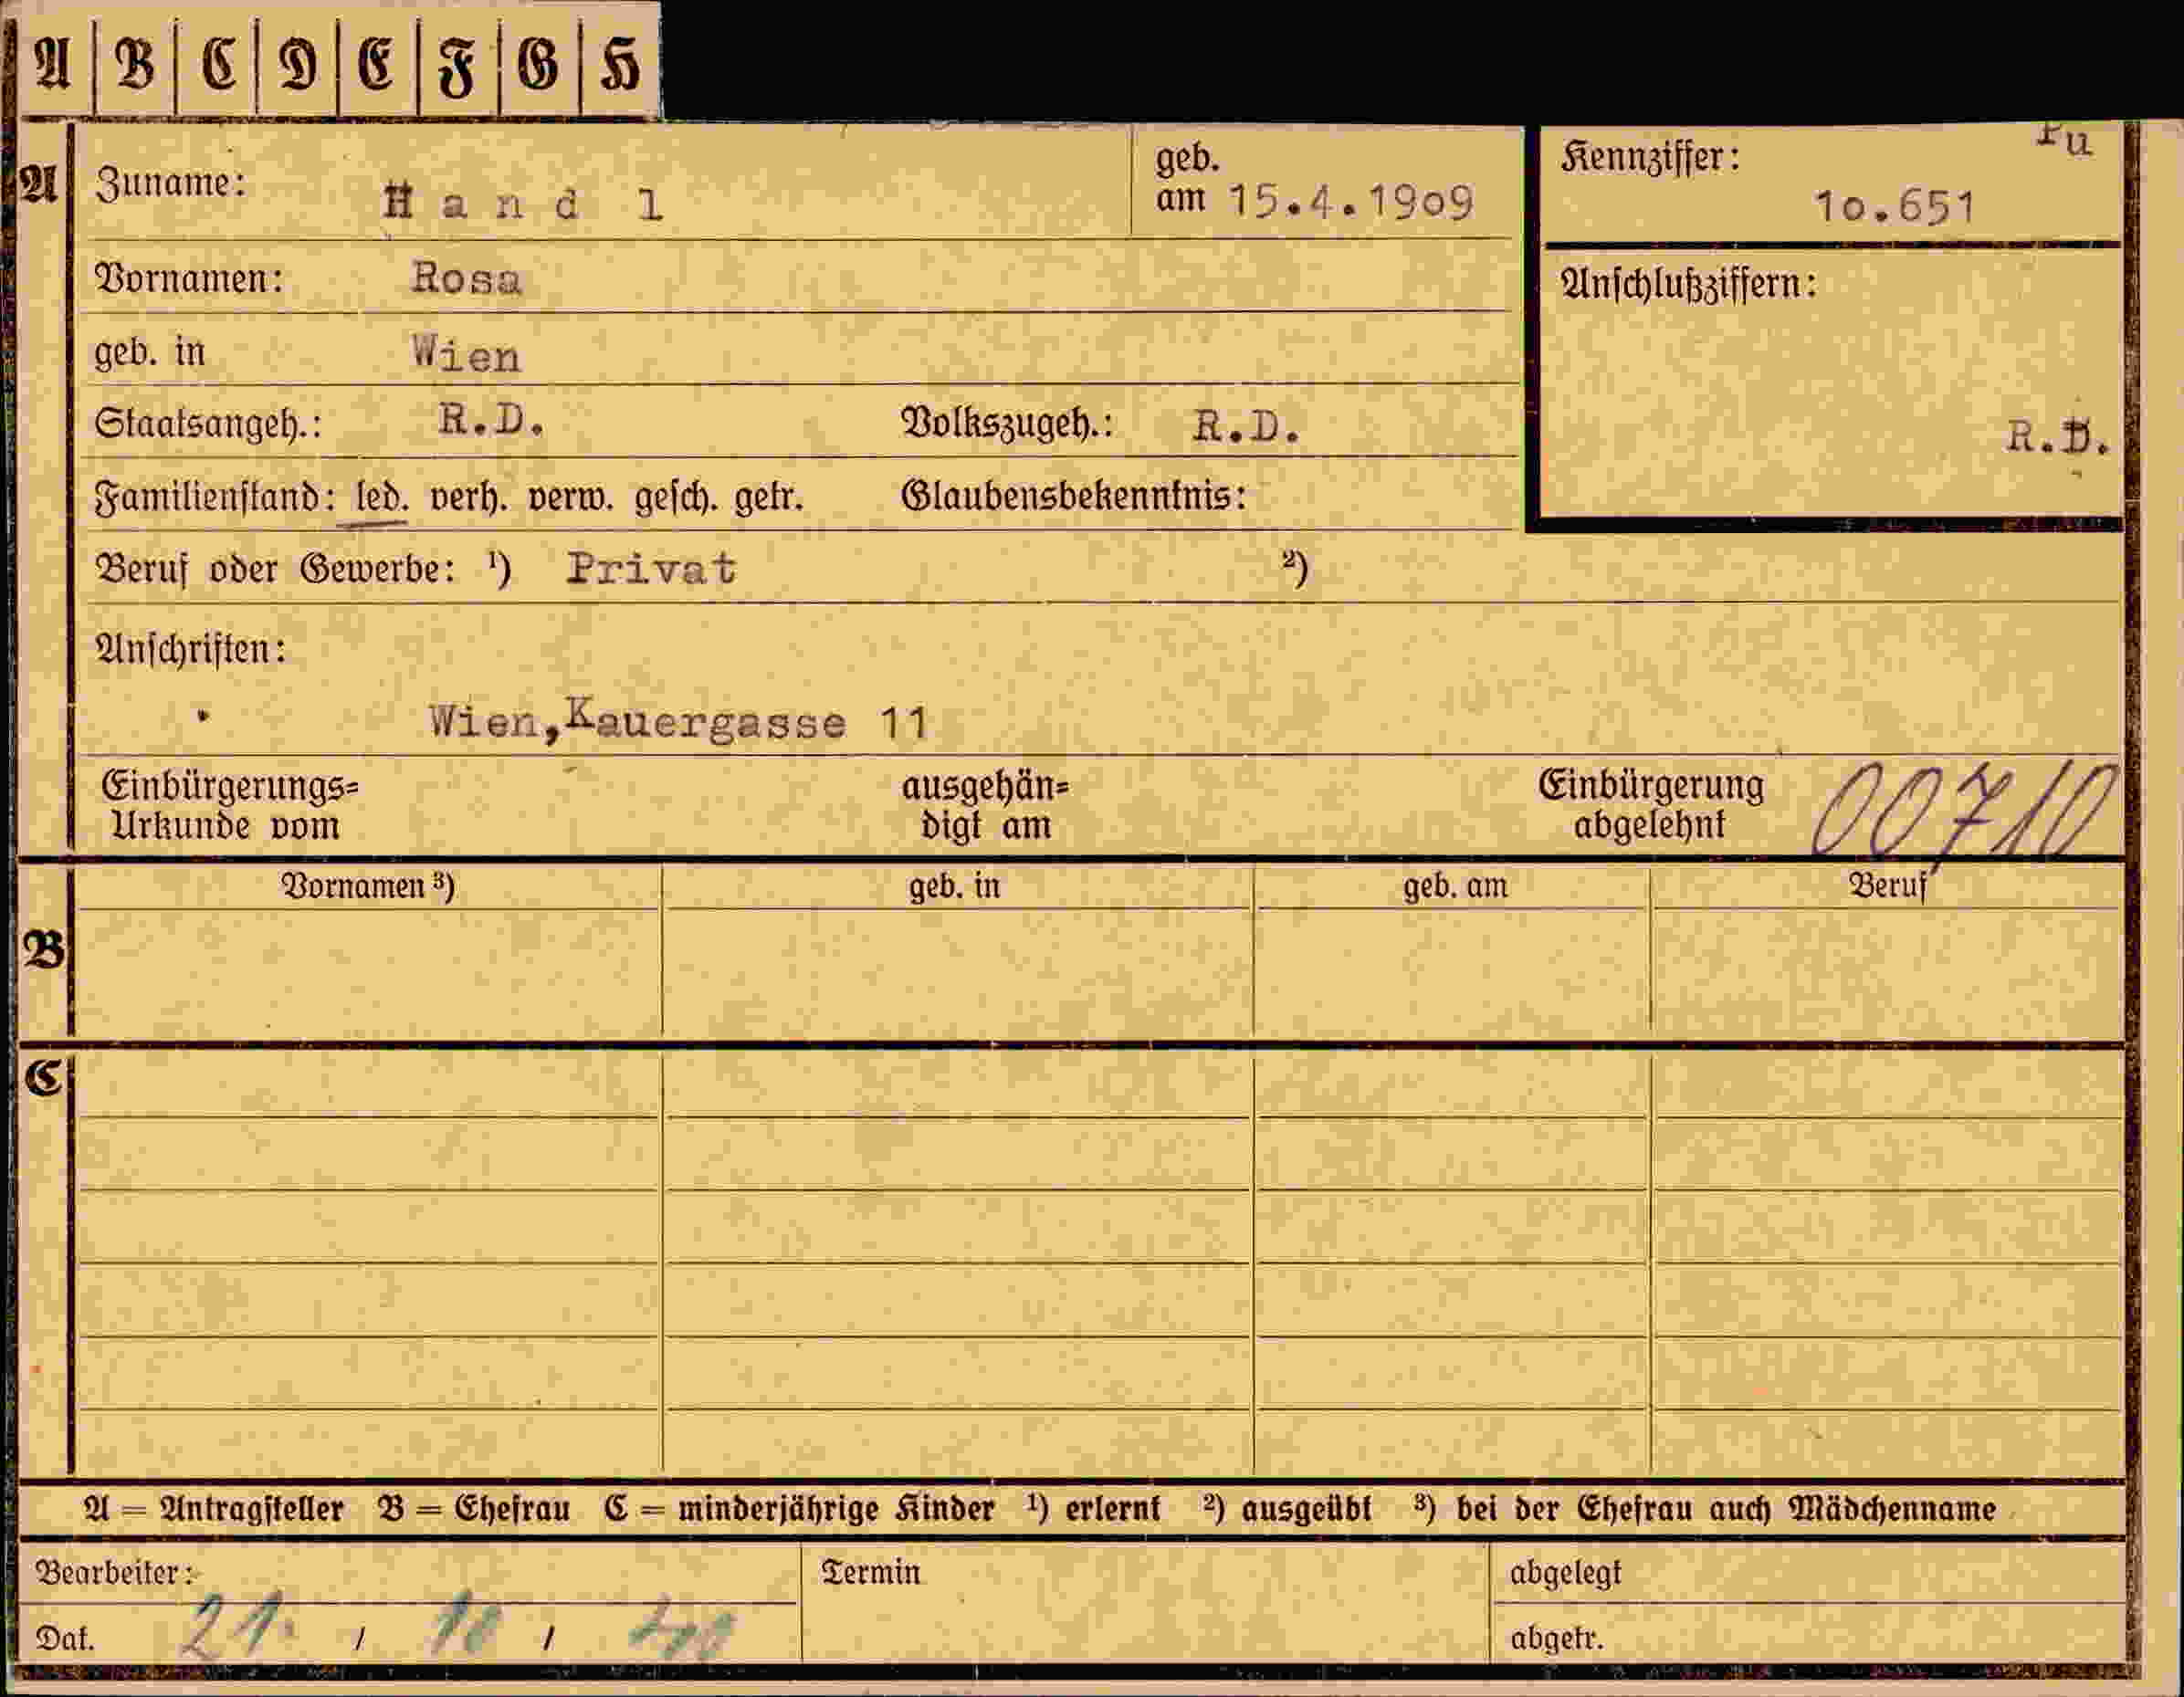 A B C D E F G H
A Zuname: H a n d l geb. am 15.4.1909
Kennziffer: Fu
10.651
Vornamen: Rosa
Anschlußziffern:
geb. in Wien
Staatsangeh.: R.D. Volkszugeh.: R.D.
R.D.
Familienstand: led. verh. verw. gesch. getr. Glaubensbekenntnis:
Beruf oder Gewerbe: ¹) Privat ²)
Anschriften:
Wien,Kauergasse 11
Einbürgerungs= ausgehän= Einbürgerung 00710
Urkunde vom digt am abgelehnt
Vornamen ³) geb. in geb. am Beruf
B
C
A = Antragsteller B = Ehefrau C = minderjährige Kinder ¹) erlernt ²) ausgeübt ³) bei der Ehefrau auch Mädchenname
Bearbeiter: Termin abgelegt
Dat. 21. / 10 / 40 abgetr.